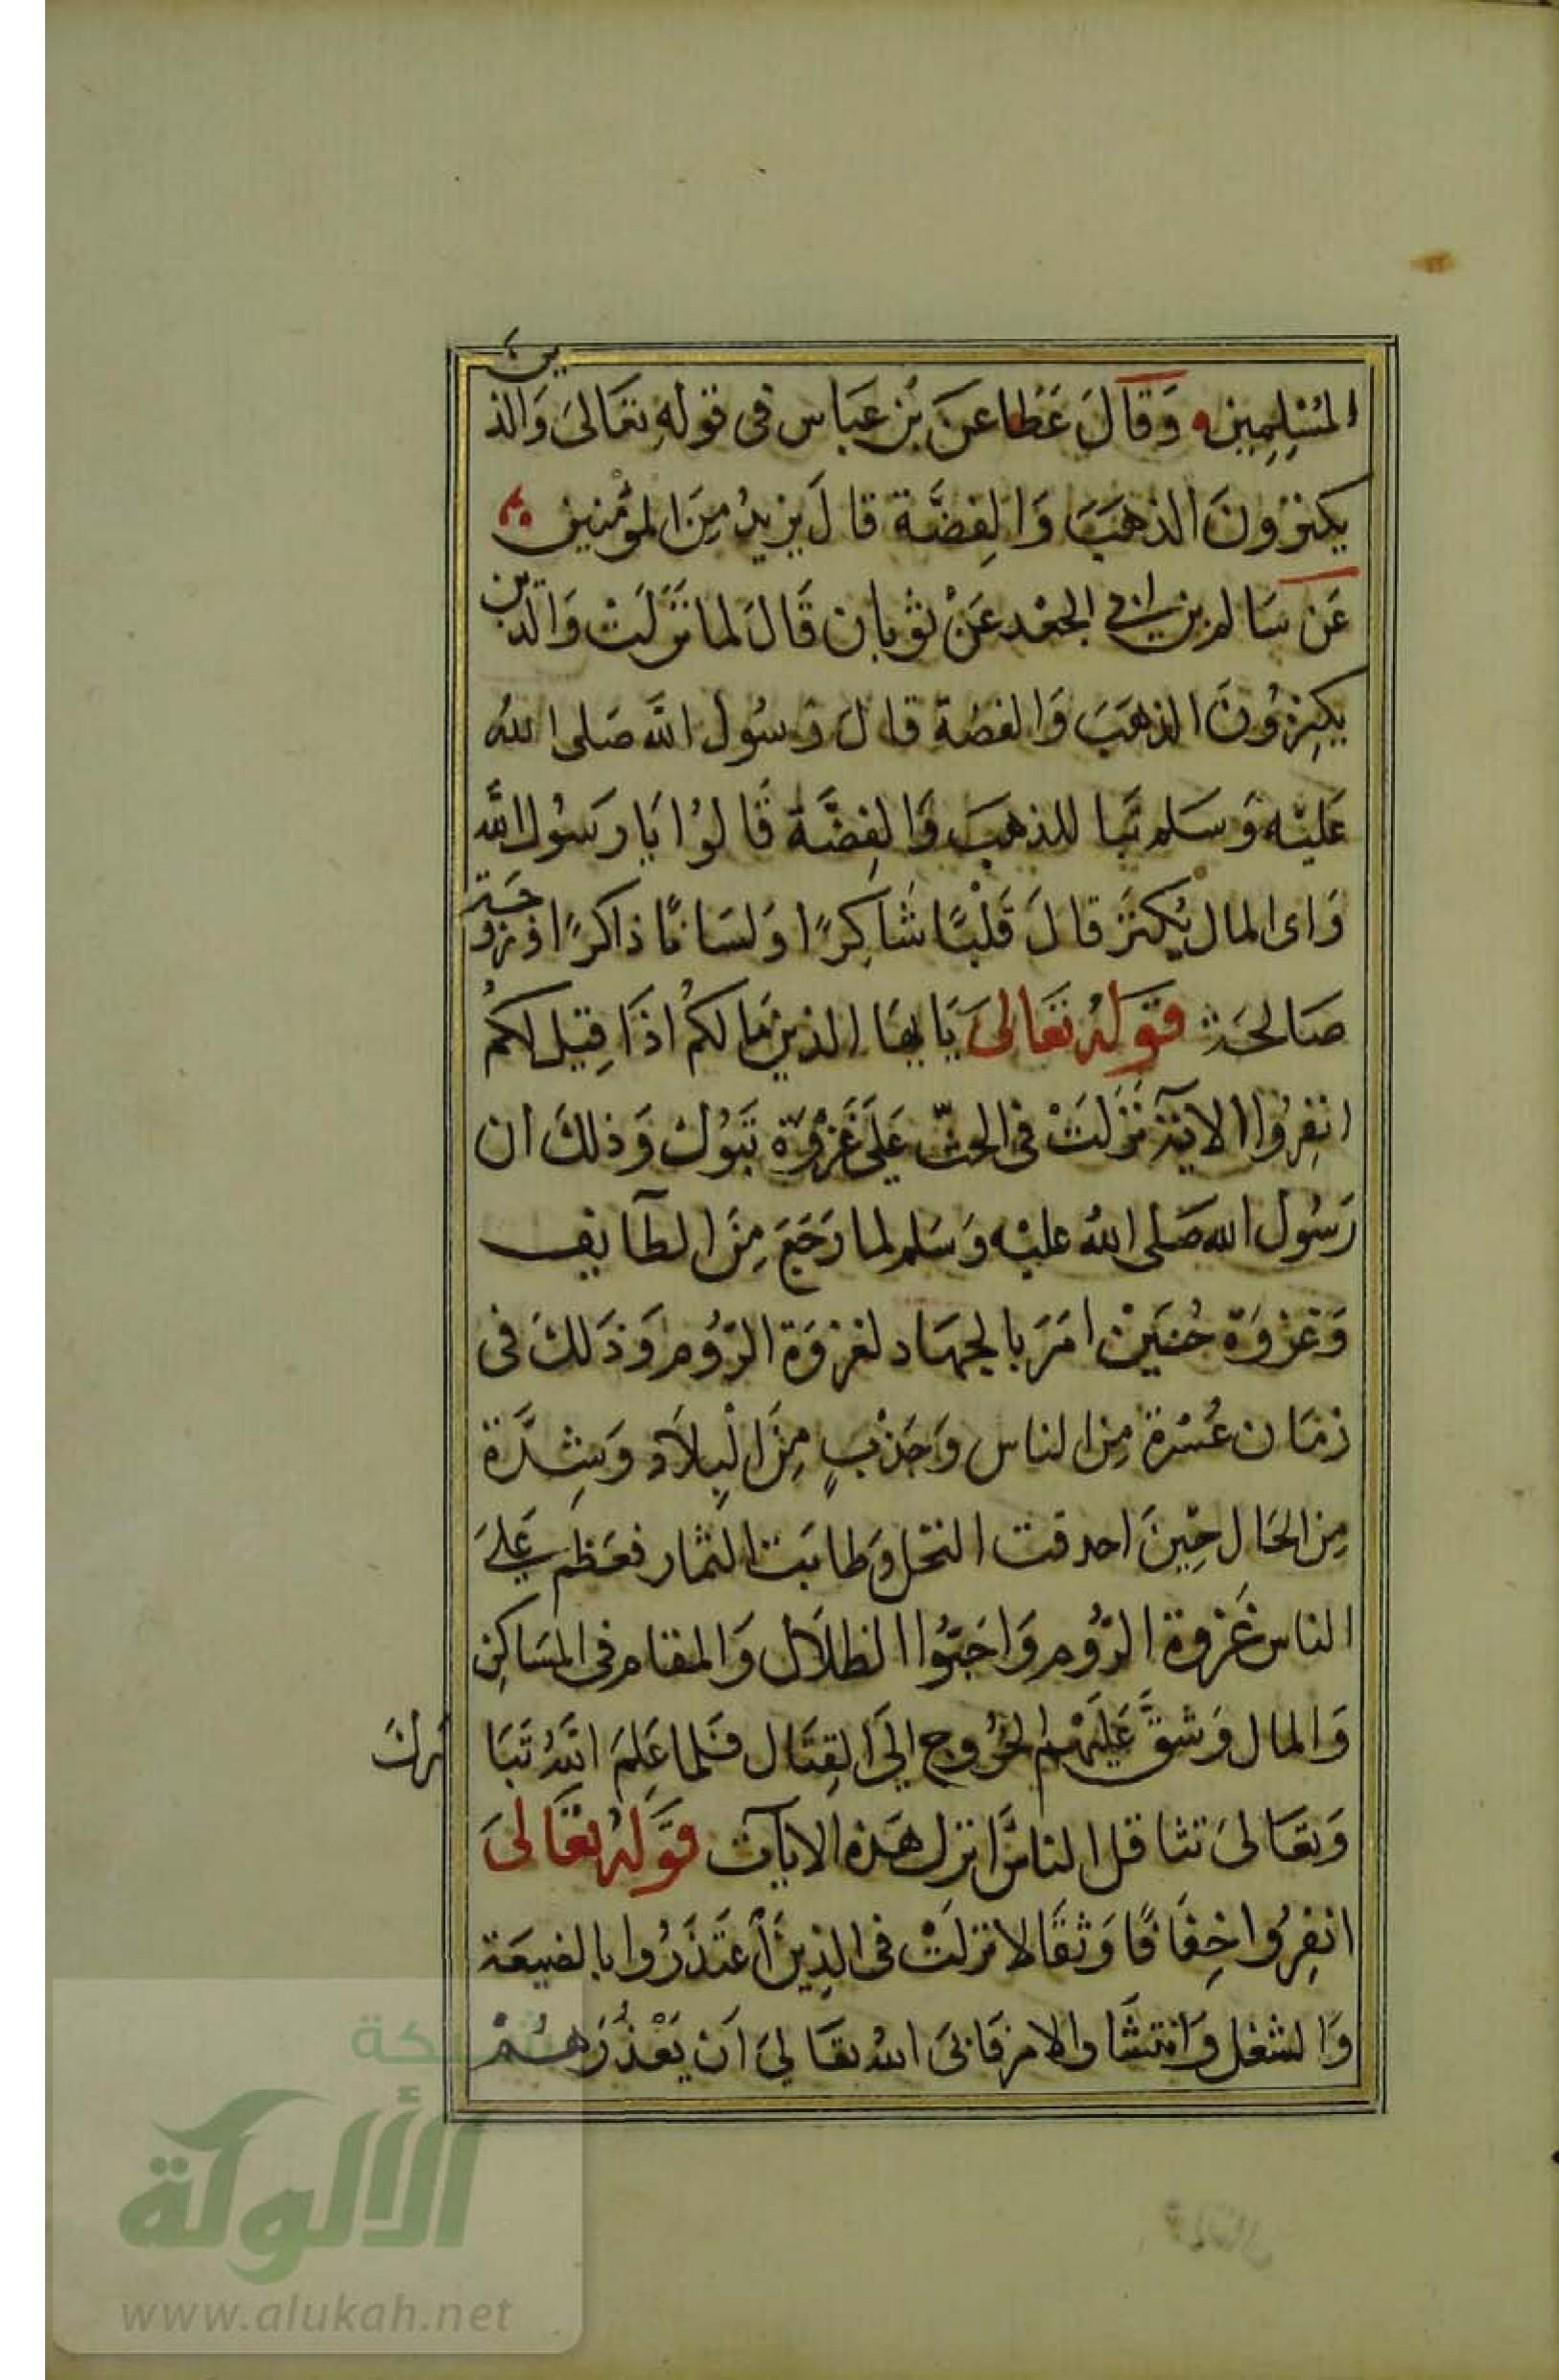 المُسْلِمِين وَقَالَ عَطَا عَن بْن عَبَاس فى قوله تعَالىَ وَالذين
يكنزونَ الذهَبَ وَالِفضَّة قالَ يزيدُ مِنَ المؤْمنين
عَن سَالم بن ابى الجعْد عَنْ ثوبان قَالَ لما نَزَلَتْ وَالذين
يكنِزُونَ الذهَبَ وَالفضة قال رسُول الله صَلى اللهُ
عَليْه وَسَلم تبا للذهبَ وَالِفضَّة قَالوُا يَا رَسُول الله
وَاى المال يُكنَز قالَ قَلْبًا شَاكِرًا وَلسَانًا ذاكرًا وزوجَة
صَالحَة قَولهُ تعَالىَ يَايهَا الذين مَا لكمُ اذَا قِيل لكمُ
انفِرُوا الايَة نَزَلَتْ فى الحثّ عَلَى غَزْوَة تبَوُك وَذلكَ ان
رَسُول الله صَلى اللهُ عليْه وَسَلم لما رَجَعَ مِنَ الطآيف
وَغزوَة حُنيَنْ امَرَ بالجهَاد لغزوَة الرُّوم وَذَلكَ فى
زمَان عُسْرة مِن الناس وَجَدْبٍ مِنَ الْبِلاَد وَشِدَّة
مِن الحَال حِيْنَ احدقت النخل وَطابَت الثمار فعَظم عَلىَ
الناس غَزوة الرُّوم وَاحَبّوُا الظلاَل وَالمقام فى المسَاكِن
وَالمال وَشقَّ عَليَهْم الخُروج إلىَ القِتَال فَلما عَلِمَ اللهُ تبَا
رك
وَتعَالىَ تثاقل الناسَ انزل هَذه الايآت قَولهُ تعَالىَ
انفِرُوا خِفَافًا وَثقَالا نزلَتْ فى الذِينَ اعتَذَرُوا بالضيعَة
وَالشغل وَانتشَار الامر فَابىَ اللهُ تعَالىَ اَن يَعْذُرَهُمْ
شبكة
الألوكة
www.alukah.net